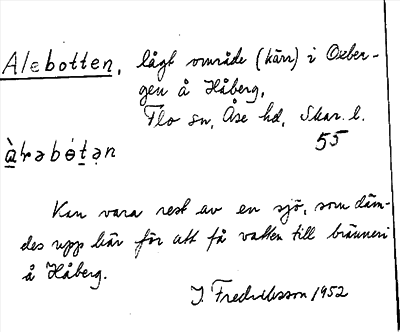 Alebotten, lågt område (kärr) i Oxber-
gen å Håberg,
Flo sn, Åse hd, Skar. l.
55
àrəbotən
Kan vara rest av en sjö, som däm-
des upp här för att få vatten till bränneri
å Håberg.
J. Fredriksson 1952